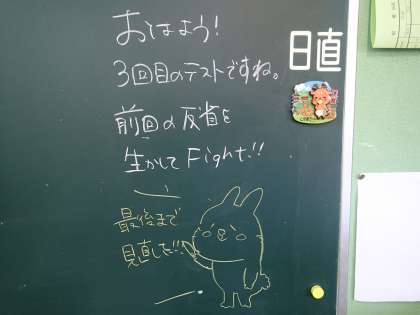 おはよう!
3回目のテストですね。
前回の反省を
生かして Fight!!
最後まで
見直しを!!
日直